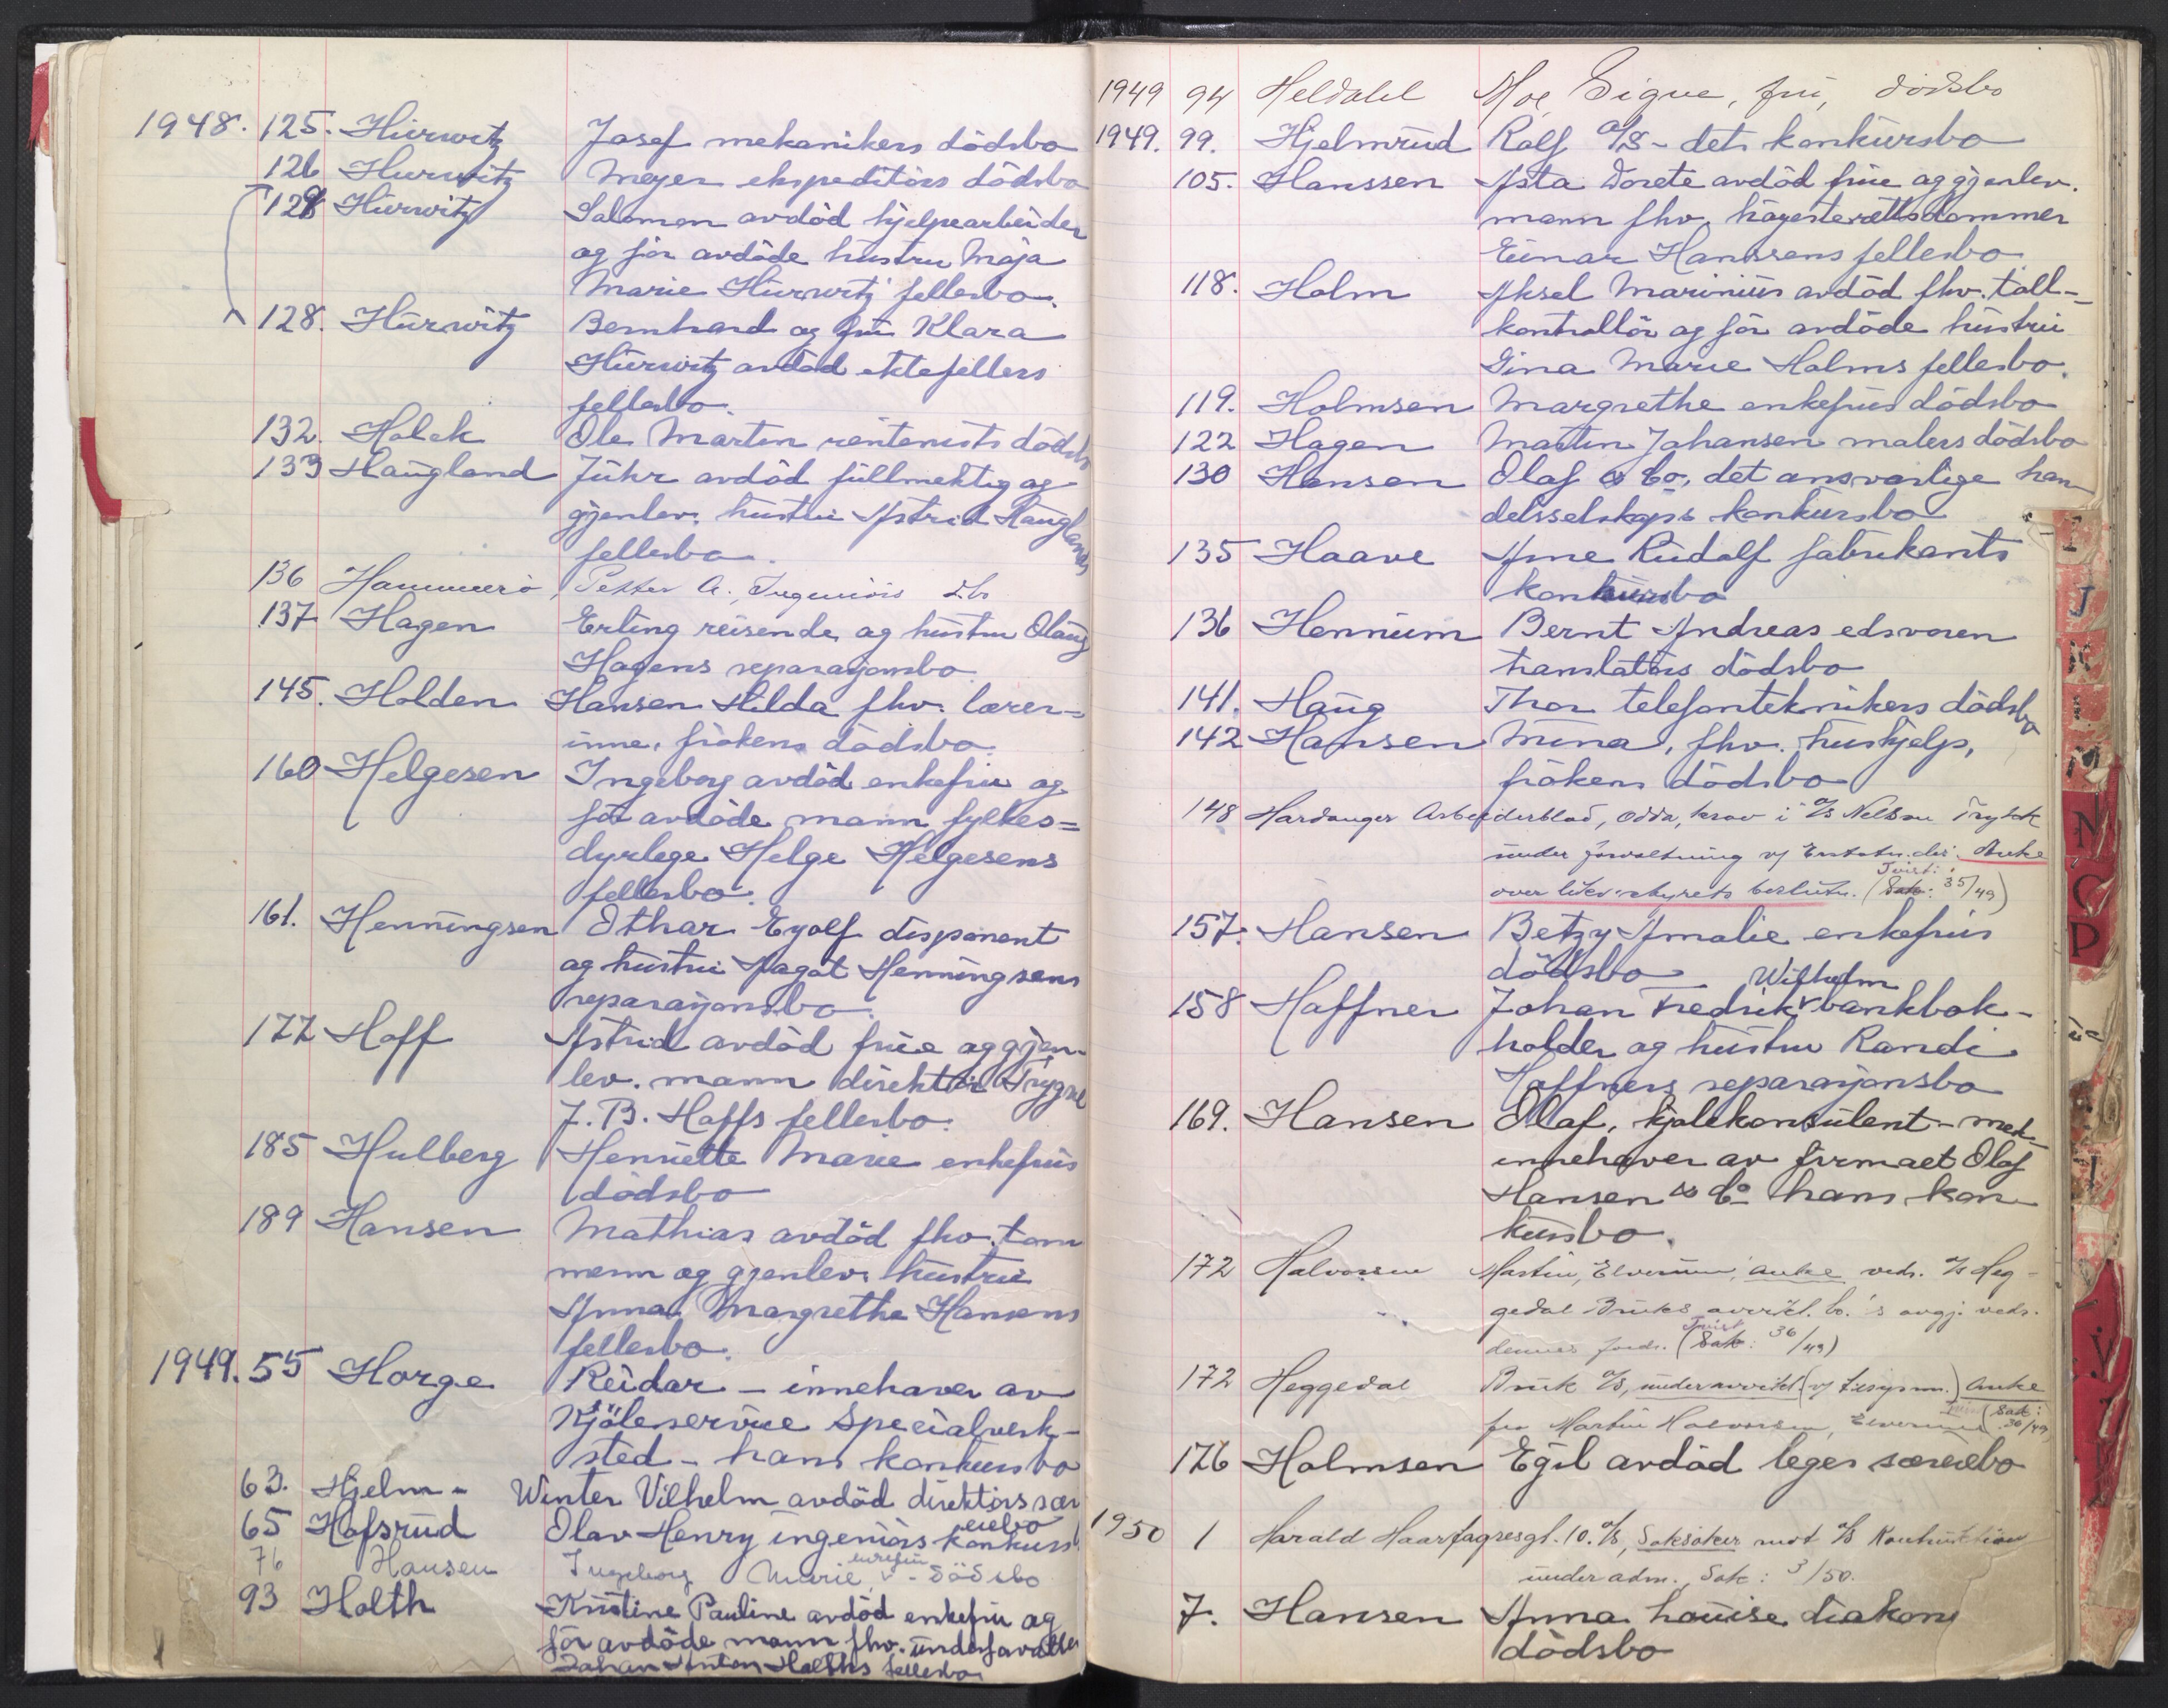 1948. 125. Hurwitz Josef mekanikers dödsbo
126 Hurwitz Meyer ekspeditörs dödsbo
129 Hurwitz Salomon avdöd hjelpearbeider
og för avdöde hustru Maja
Marie Hurwitz' fellesbo.
128. Hurwitz Bernhard og fru Klara
Hurwitz avdöd ektefellers
fellesbo.
132. Holck Ole Martin rentenists dödsbo
133 Haugland Juhr avdöd fullmektig og
gjenlev. hustru Astrid Hauglands
fellesbo.
136 Hammerö, Petter A., Ingeniörs d.bo
137 Hagen Erling reisende og hustru Olaug
Hagens separasjonsbo
145. Holden Hansen Hilda fhv. lærer=
inne, frökens dödsbo.
160 Helgesen Ingeborg avdöd enkefru og
för avdöde mann fylkes=
dyrlege Helge Helgesens
fellesbo.
161. Henningsen Othar Eyolf disponent
og hustru Aagot Henningsens
separasjonsbo.
177 Hoff Astrid avdöd frue og gjen-
lev. mann direktör Trygve
J. B. Hoffs fellesbo.
185 Hulberg Henriette Marie enkefrus
dödsbo
189 Hansen Mathias avdöd fhv. tom
mermann og gjenlev. hustru
Anna Margrethe Hansens
fellesbo.
1949. 55 Horge Reidar - innehaver av
Kjöleservice Specialverk-
sted - hans konkursbo
63. Hjelm- Winter Vilhelm avdöd direktörs sær
eiebo
65 Hofsrud Olav Henry ingeniörs konkurs
76 Hansen Ingeborg Marie, enkefru - dödsbo
93 Holth Kristine Pauline avdöd enkefru og
för avdöde mann fhv. underforvalter
Johan Anton Holths fellesbo
1949 94 Heldahl Moe Signe, fru, dödsbo
1949. 99. Hjelmrud Rolf A/S - dets konkursbo
105. Hanssen Asta Dorete avdöd frue og gjenlev.
mann fhv. höyesterettsdommer
Einar Hanssens fellesbo
118. Holm Aksel Marinius avdöd fhv. toll-
kontrollör og för avdöde hustru
Gina Marie Holms fellesbo.
119. Holmsen Margrethe enkefrus dödsbo
122 Hagen Martin Johansen malers dödsbo
130 Hansen Olaf & Co, det ansvarlige han
delsselskaps konkursbo
135 Haave Arne Rudolf fabrikants
konkursbo
136 Hennum Bernt Andreas edsvoren
translatörs dödsbo
141. Haug Thor telefonteknikers dödsbo
142 Hansen Mina, fhv. hushjelp,
frökens dödsbo
148 Hardanger Arbeiderblad, Odda, krav i A/S Nelson Trykk
under forvaltning v/ Erstatn.dir. Anke
over likv.styrets beslutn. (Tvist: Sak: 35/49)
157. Hansen Betzy Amalie enkefrus
dödsbo
158 Haffner Johan Fredrik Wilhelm bankbok-
holder og hustru Randi
Haffners separasjonsbo
169. Hansen Olaf, kjölekonsulent - med-
innehaver av firmaet Olaf
Hansen & Co hans kon
kursbo.
172 Halvorsen Martin, Elverum, anke vedr. A/S Heg-
gedal Bruks avvikl. bo.'s avgj. vedr.
dennes fordr. (Tvist Sak: 36/49)
172 Heggedal Bruk A/S, under avvikl. (v/ tilsynsm.) Anke
fra Martin Halvorsen, Elverum (Tvist Sak: 36/49)
176 Holmsen Egil avdöd leges særeiebo
1950 1 Harald Haarfagresgt. 10. A/S, Saksöker mot A/S Konstruktion
under adm., Sak: 3/50.
7. Hansen Anna Louise diakons
dödsbo
I
J
K
L
M
N
O
P